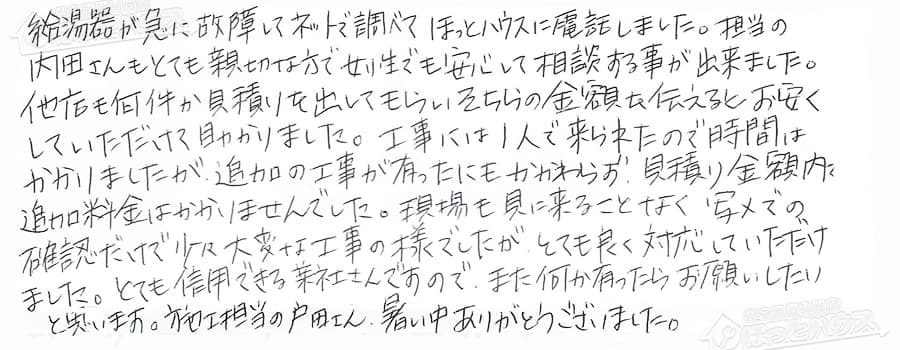 給湯器が急に故障してネットで調べて ほっとハウスに電話しました。担当の
内田さんもとても親切な方で女性でも安心して相談する事が出来ました。
他店も何件か見積りを出してもらいそちらの金額を伝えると お安く
していただけて助かりました。工事には1人で来られたので時間は
かかりましたが、追加の工事が有ったにもかかわらず、見積り金額内で
追加料金はかかりませんでした。現場も見に来ることなく 写メでの
確認だけで少々大変な工事の様でしたが、とても良く対応していただけ
ました。とても信用できる業社さんですので、また何か有ったらお願いしたい
と思います。施工担当の戸田さん、暑い中ありがとうございました。
ほっとハウス